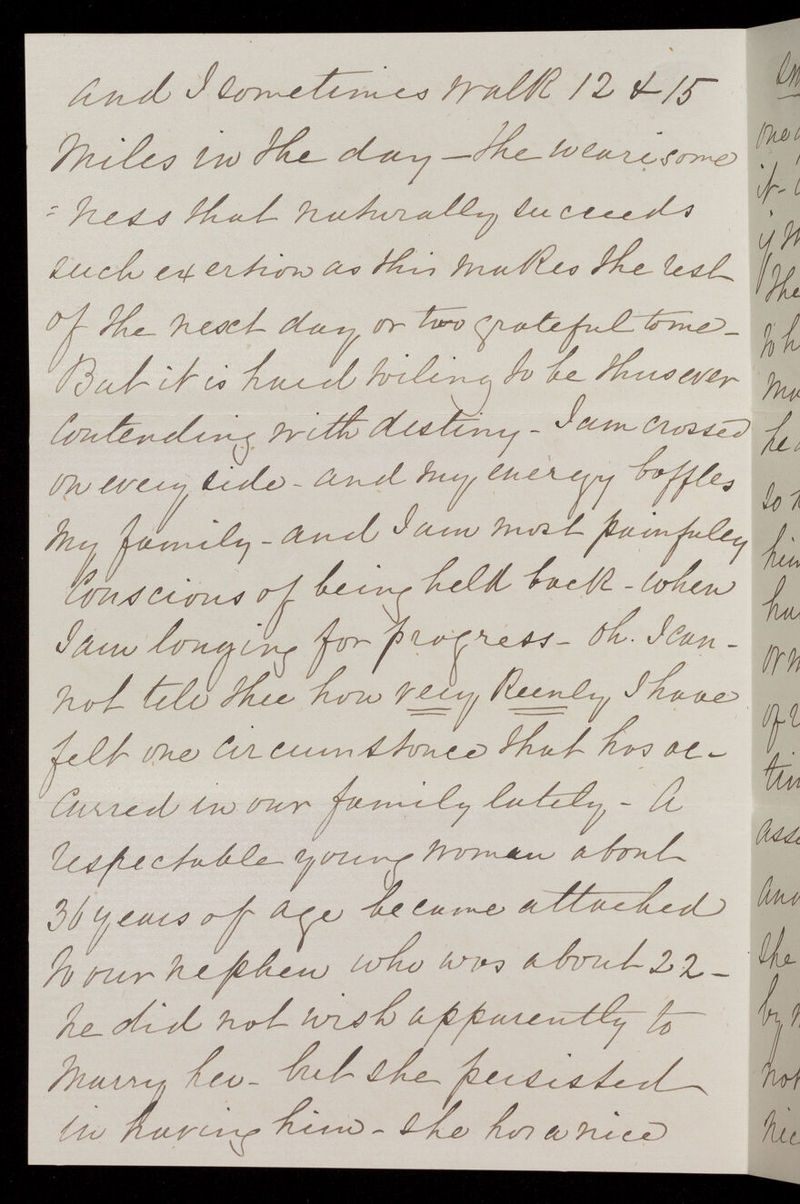 and I sometimes walk 12 & 15
miles in the day — the wearisome
= ness that naturally succeeds
such exertion as this makes the rest
of the next day or two grateful to me —
But it is hard toiling to be thus ever
contending with destiny - I am crossed
on every side - and my energy baffles
my family - and I am most painfully
conscious of being held back - when
I am longing for progress - oh. I can -
not tell thee how very keenly I have
felt one circumstance that has oc -
curred in our family lately - A
respectable young woman about
36 years of age became attached
to our nephew who was about 22 -
he did not wish apparently to
marry her - but she persisted
in having him - she has a nice
one
it -
if
the
wh
ma
he
so
him
ha
or
of
tim
asse
and
she
by
not
nic